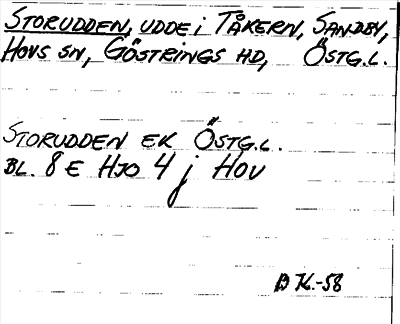 STORUDDEN, UDDE i TÅKERN, SANDBY,
HOVS SN, GÖSTRINGS HD, ÖSTG.L.
STORUDDEN EK ÖSTG.L.
BL. 8 E HJO 4 j HOV
B K.-58